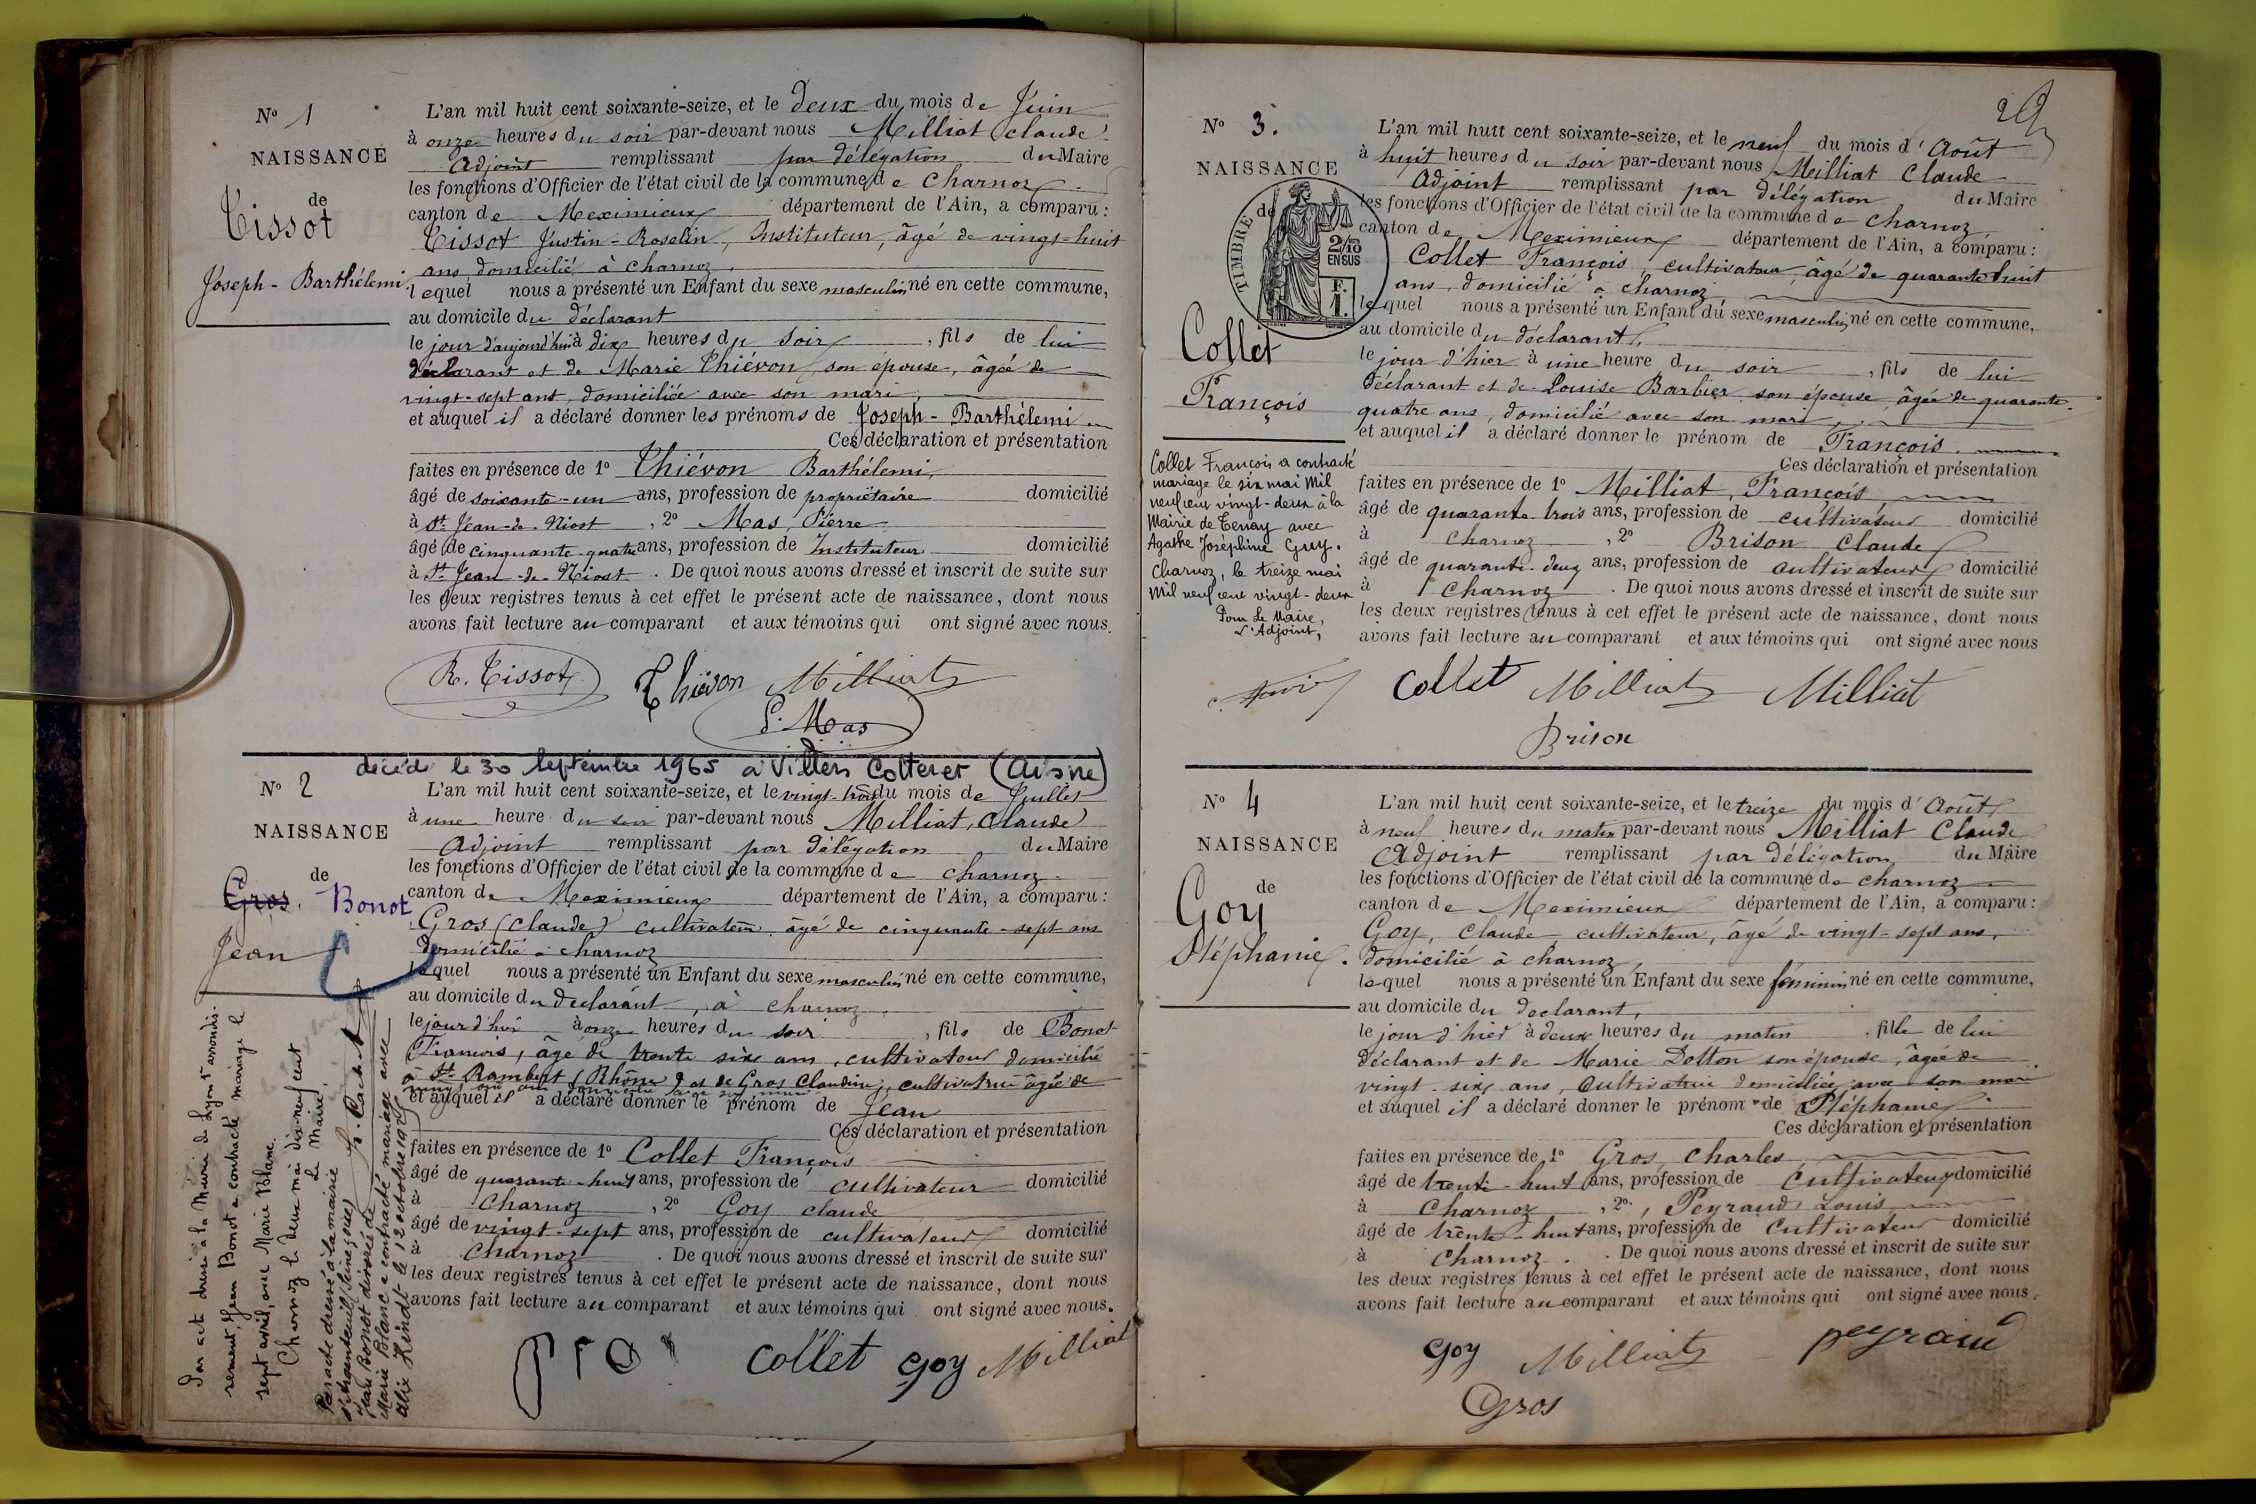 N° 1
NAISSANCE
de
Tissot
Joseph - Barthélemi.
L'an mil huit cent soixante-seize, et le deux du mois de Juin
à onze heures du soir par-devant nous Milliat Claude
Adjoint remplissant par délégation du Maire
les fonctions d'Officier de l'état civil de la commune de Charnoz
canton de Meximieux département de l'Ain, a comparu :
Tissot Justin - Roselin, Instituteur, âgé de vingt-huit
ans domicilié à Charnoz,
lequel nous a présenté un Enfant du sexe masculin né en cette commune,
au domicile du déclarant
le jour d'aujourd'hui à dix heures du soir, fils de lui
déclarant et de Marie Thiévon, son épouse, âgée de
vingt-sept ans, domiciliée avec son mari,
et auquel il a déclaré donner les prénoms de Joseph - Barthélemi
Ces déclaration et présentation
faites en présence de 1° Thiévon Barthélemi,
âgé de soixante-un ans, profession de propriétaire domicilié
à St Jean-de-Niost, 2° Mas, Pierre
âgé de cinquante-quatre ans, profession de Instituteur domicilié
à St Jean-de-Niost. De quoi nous avons dressé et inscrit de suite sur
les deux registres tenus à cet effet le présent acte de naissance, dont nous
avons fait lecture au comparant et aux témoins qui ont signé avec nous.
R. Tissot Thiévon Milliat
P. Mas
décédé le 30 Septembre 1965 à Villers Cotteret (Aisne)
N° 2
NAISSANCE
de
Gros. Bonot
Jean
L'an mil huit cent soixante-seize, et le vingt-trois du mois de Juillet
à une heure du soir par-devant nous Milliat, Claude
Adjoint remplissant par délégation du Maire
les fonctions d'Officier de l'état civil de la commune de Charnoz
canton de Meximieux département de l'Ain, a comparu :
Gros (Claude) cultivateur âgé de cinquante-sept ans
domicilié à Charnoz
lequel nous a présenté un Enfant du sexe masculin né en cette commune,
au domicile du déclarant, à Charnoz,
le jour d'hier à onze heures du soir, fils de Bonot
François, âgé de trente six ans, cultivateur domicilié
à St Rambert (Rhône) et de Gros Claudine, cultivatrice âgée de
et auquel il a déclaré donner le prénom de Jean
Ces déclaration et présentation
faites en présence de 1° Collet François
âgé de quarante-huit ans, profession de cultivateur domicilié
à Charnoz, 2° Goy Claude
âgé de vingt-sept ans, profession de cultivateur domicilié
à Charnoz. De quoi nous avons dressé et inscrit de suite sur
les deux registres tenus à cet effet le présent acte de naissance, dont nous
avons fait lecture au comparant et aux témoins qui ont signé avec nous.
gros Collet Goy Milliat
Par act dressé à la Mairie de Lyon 1er arrondis-
sement, Jean Bonot a contracté mariage le
sept avril, avec Marie Blanc.
Charnoz le deux mai dix-neuf cent
Le Maire,
Par acte dressé à la mairie
d'Argenteuil (Seine & Oise)
Jean Bonot divorcé de
Marie Blanc a contracté mariage avec
Alix Hindt le 12 octobre 1925
29
N° 3.
NAISSANCE
de
TIMBRE
2/10
EN SUS
F.
1.
Collet
François
L'an mil huit cent soixante-seize, et le neuf du mois d'Août
à huit heures du soir par-devant nous Milliat Claude
Adjoint remplissant par délégation du Maire
les fonctions d'Officier de l'état civil de la commune de Charnoz,
canton de Meximieux département de l'Ain, a comparu :
Collet François, cultivateur, âgé de quarante huit
ans, domicilié à Charnoz
lequel nous a présenté un Enfant du sexe masculin né en cette commune,
au domicile du déclarant,
le jour d'hier à une heure du soir, fils de lui
déclarant et de Louise Barbier son épouse, âgée de quarante-
quatre ans, domicilié avec son mari
et auquel il a déclaré donner le prénom de François.
Ces déclaration et présentation
faites en présence de 1° Milliat, François
âgé de quarante-trois ans, profession de cultivateur domicilié
à Charnoz, 2° Brison Claude
âgé de quarante-deux ans, profession de cultivateur domicilié
à Charnoz. De quoi nous avons dressé et inscrit de suite sur
les deux registres tenus à cet effet le présent acte de naissance, dont nous
avons fait lecture au comparant et aux témoins qui ont signé avec nous
Collet François a contracté
mariage le six mai Mil
neuf cent vingt-deux à la
Mairie de Tenay avec
Agathe Joséphine Guy.
Charnoz, le treize mai
Mil neuf cent vingt-deux
Pour Le Maire,
L'Adjoint,
Collet Milliat Milliat
Brison
N° 4
NAISSANCE
de
Goy
Stéphanie.
L'an mil huit cent soixante-seize, et le treize du mois d'Août
à neuf heures du matin par-devant nous Milliat Claude
Adjoint remplissant par délégation du Maire
les fonctions d'Officier de l'état civil de la commune de Charnoz
canton de Meximieux département de l'Ain, a comparu :
Goy, Claude, cultivateur, âgé de vingt-sept ans,
domicilié à Charnoz,
lequel nous a présenté un Enfant du sexe féminin né en cette commune,
au domicile du déclarant,
le jour d'hier à deux heures du matin, fille de lui
déclarant et de Marie Dotton son épouse, âgée de
vingt-six ans, cultivatrice domiciliée avec son mari
et auquel il a déclaré donner le prénom de Stéphanie
Ces déclaration et présentation
faites en présence de 1° Gros Charles
âgé de trente-huit ans, profession de cultivateur domicilié
à Charnoz, 2°, Peyraud Louis
âgé de trente-huit ans, profession de cultivateur domicilié
à Charnoz. De quoi nous avons dressé et inscrit de suite sur
les deux registres tenus à cet effet le présent acte de naissance, dont nous
avons fait lecture au comparant et aux témoins qui ont signé avec nous.
Goy Milliat peyraud
Gros